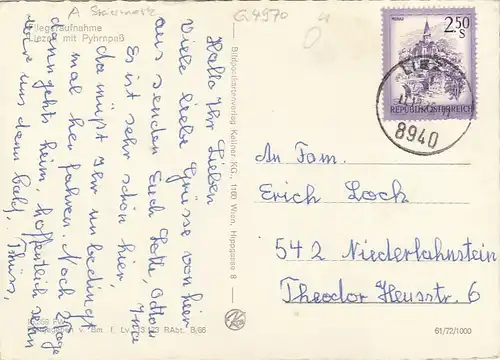 A Steiermark
G.4970
Fliegeraufnahme
Liezen mit Pyhrnpaß
Hallo Ihr Lieben
Viele liebe Grüsse von hier
aus senden Euch Lotte, Otto u
Inge
Es ist sehr schön hier
da müßt Ihr unbedingt
mal her fahren. Noch 2 Tage
dann geht's heim, hoffentlich sehn
wir uns dann bald,
Tschüss,
Bildpostkartenverlag Kellner KG., 1160 Wien, Hippgasse 8
2.50 S
REPUBLIK ÖSTERREICH
8940
An Fam.
Erich Lock
542 Niederlahnstein
Theodor Heusstr. 6
61/72/1000